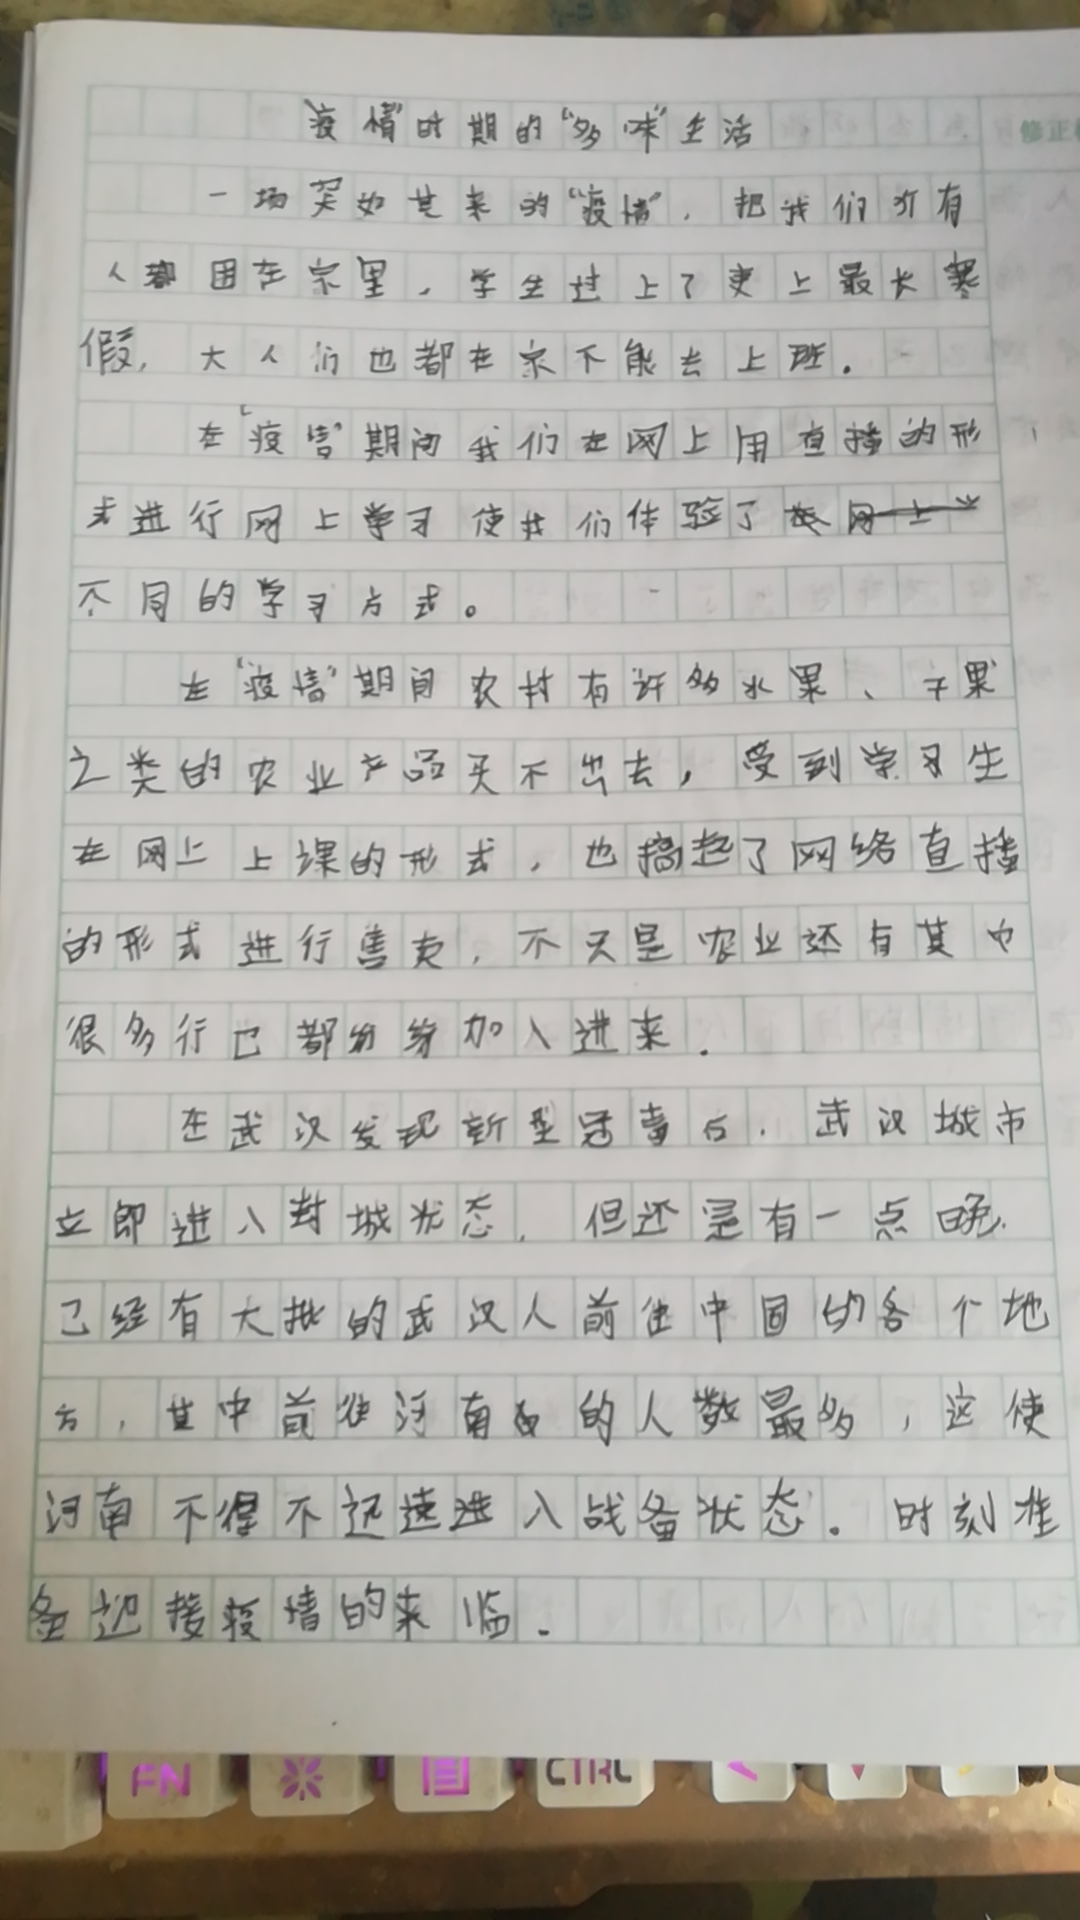 “疫情”时期的“多味”生活
一场突如其来的“疫情”，把我们所有
人都困在家里，学生过上了史上最长寒
假，大人们也都在家不能去上班。
在“疫情”期间我们在网上用直播的形
式进行网上学习使我们体验了
不同的学习方式。
在“疫情”期间农村有许多水果、干果
之类的农业产品买不出去，受到学习生
在网上上课的形式，也搞起了网络直播
的形式进行售卖，不只是农业还有其中
很多行已都纷纷加入进来．
在武汉发现新型冠毒后．武汉城市
立即进入封城状态，但还是有一点晚．
已经有大批的武汉人前往中国的各个地
方，其中前往河南的人数最多，这使
河南不得不迅速进入战备状态。时刻准
备迎接疫情的来临．
修正
FN
CTRL